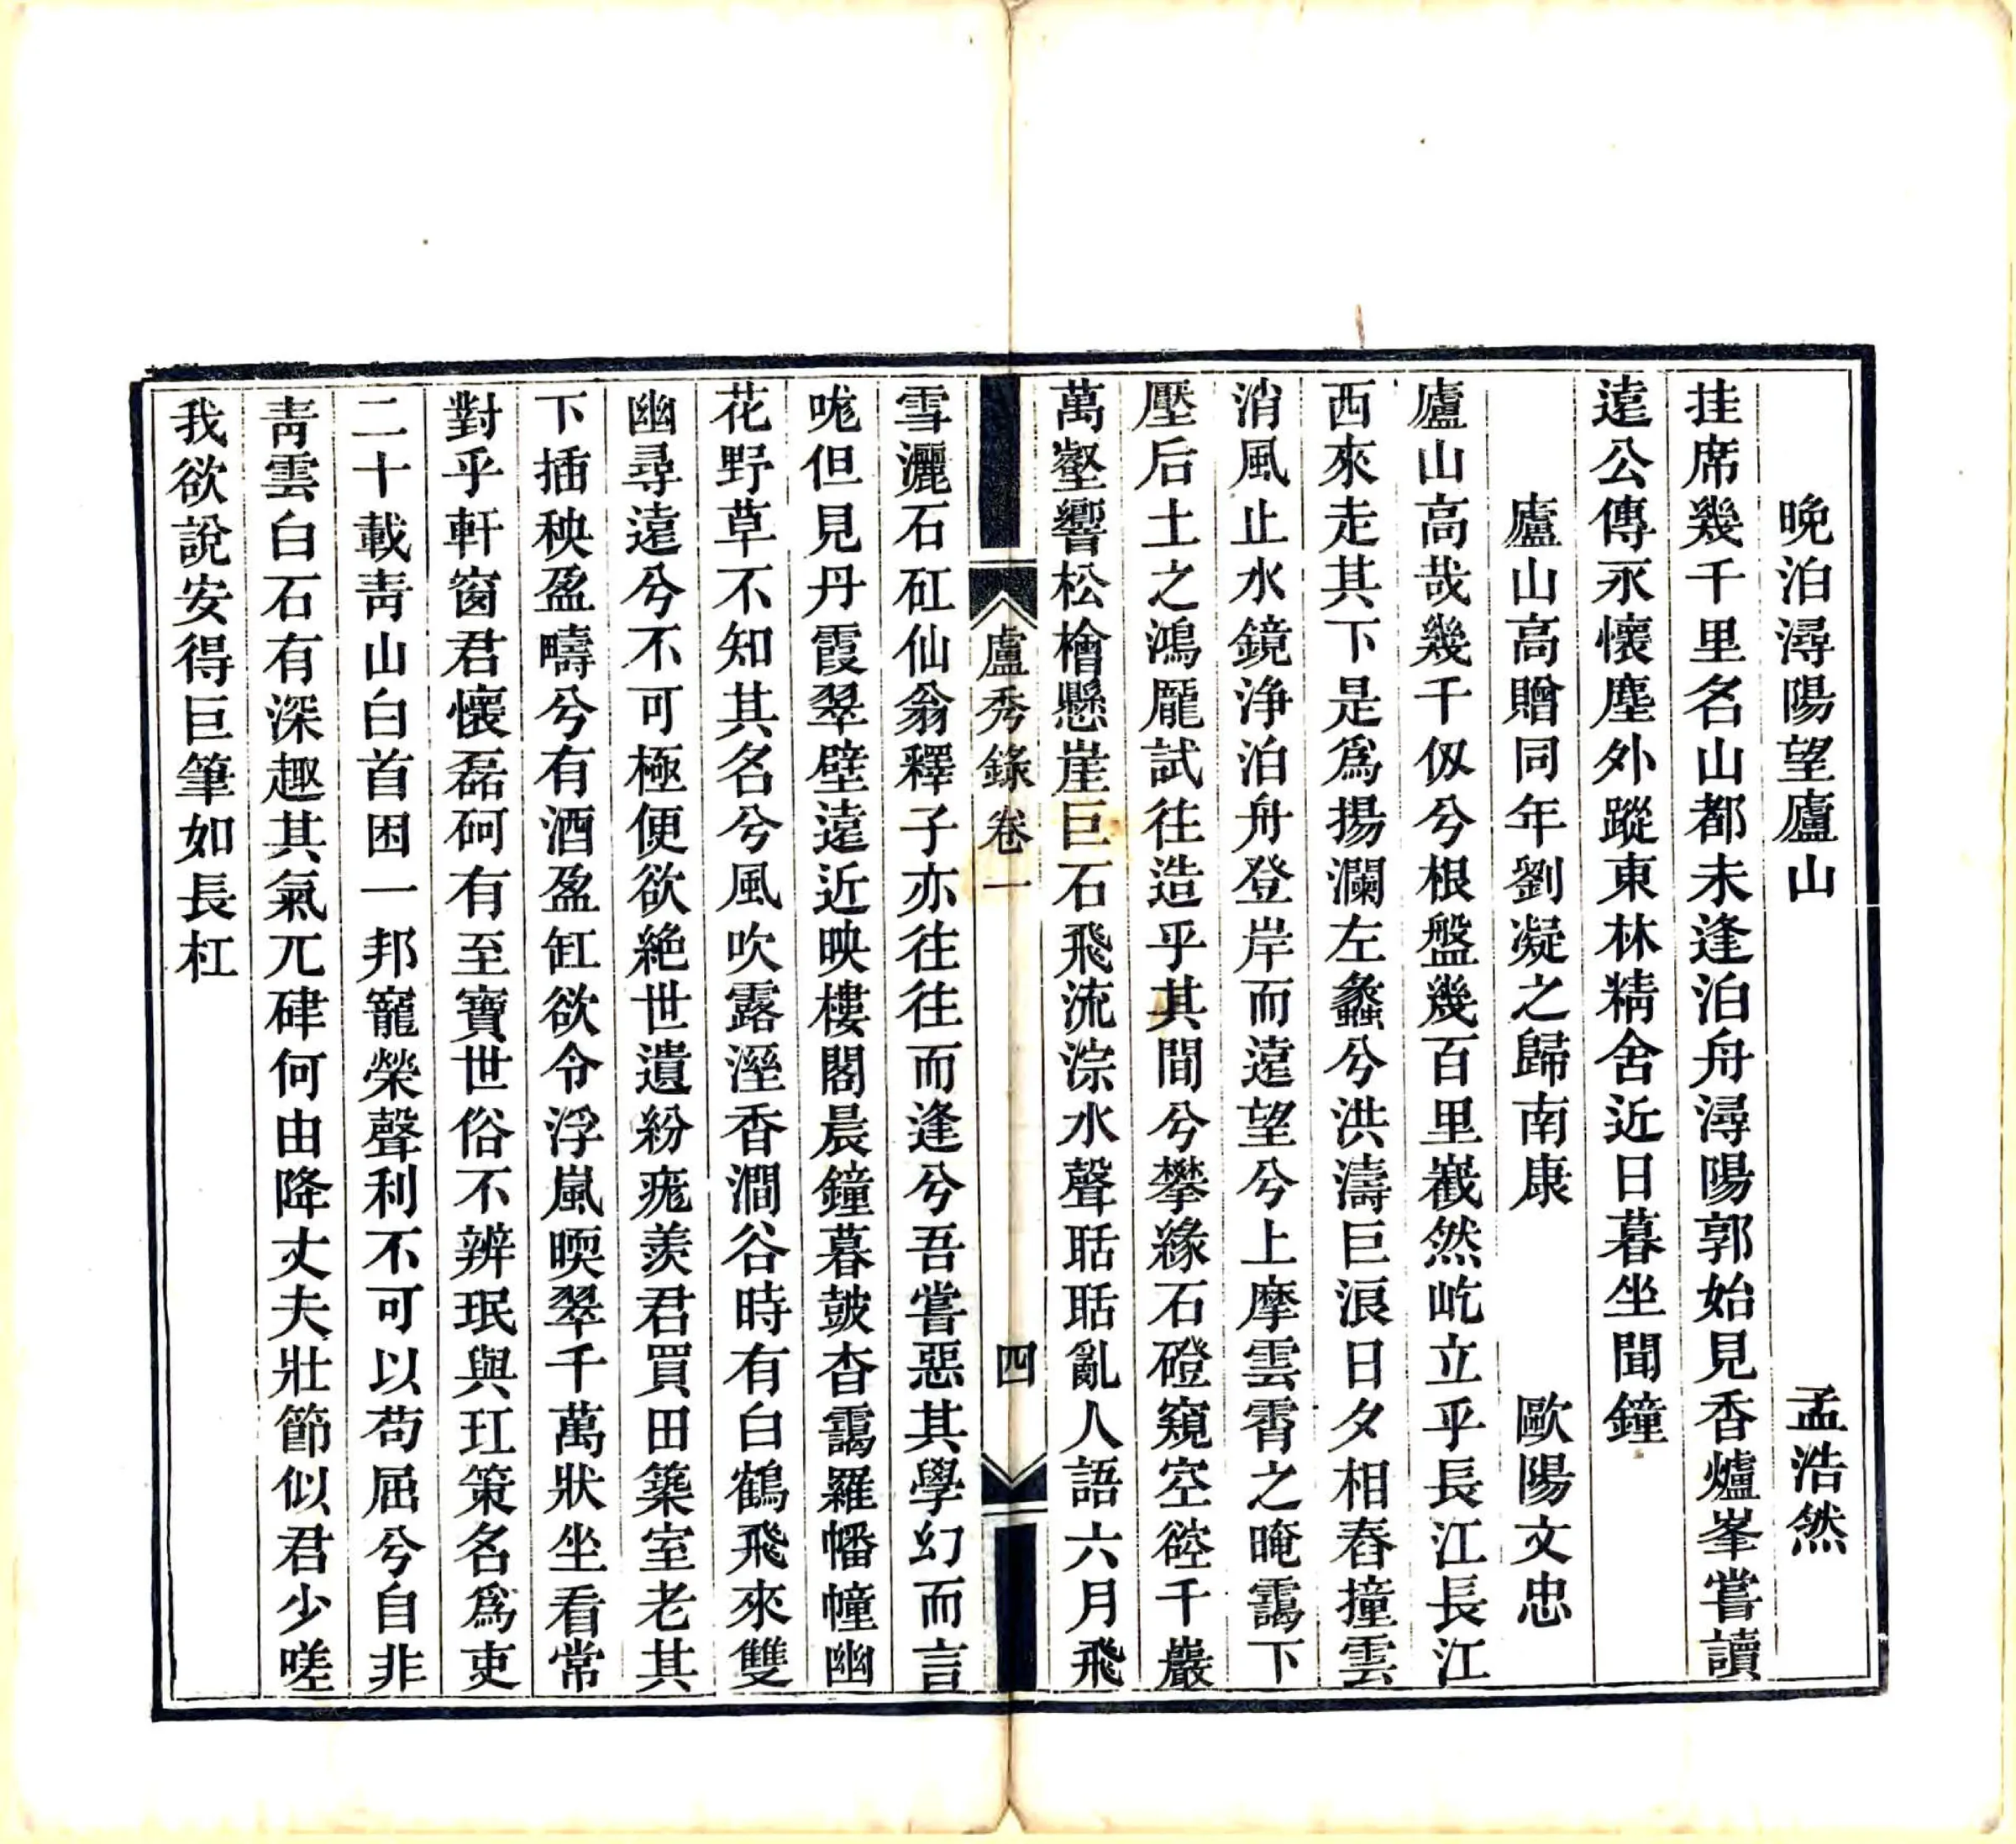 晚泊潯陽望廬山 孟浩然
挂席幾千里名山都未逢泊舟潯陽郭始見香爐峯嘗讀
遠公傳永懷塵外蹤東林精舍近日暮坐聞鐘
廬山高贈同年劉凝之歸南康 歐陽文忠
廬山高哉幾千仭兮根盤幾百里嶻然屹立乎長江長江
西來走其下是爲揚瀾左蠡兮洪濤巨浪日夕相舂撞雲
消風止水鏡浄泊舟登岸而遠望兮上摩雲霄之晻靄下
壓后土之鴻龎試往造乎其間兮攀緣石磴窺空硿千巖
萬壑響松檜懸崖巨石飛流淙水聲聒聒亂人語六月飛
廬秀錄卷一 四
雪灑石矼仙翁釋子亦往往而逢兮吾嘗惡其學幻而言
哤但見丹霞翠壁遠近映樓閣晨鐘暮皷杳靄羅幡幢幽
花野草不知其名兮風吹露溼香澗谷時有白鶴飛來雙
幽尋遠兮不可極便欲絶世遺紛痝羨君買田築室老其
下插秧盈疇兮有酒盈缸欲令浮嵐暎翠千萬狀坐看常
對乎軒窗君懷磊砢有至寶世俗不辨珉與玒策名爲吏
二十載靑山白首困一邦寵榮聲利不可以苟屈兮自非
靑雲白石有深趣其氣兀硉何由降丈夫壯節似君少嗟
我欲說安得巨筆如長杠